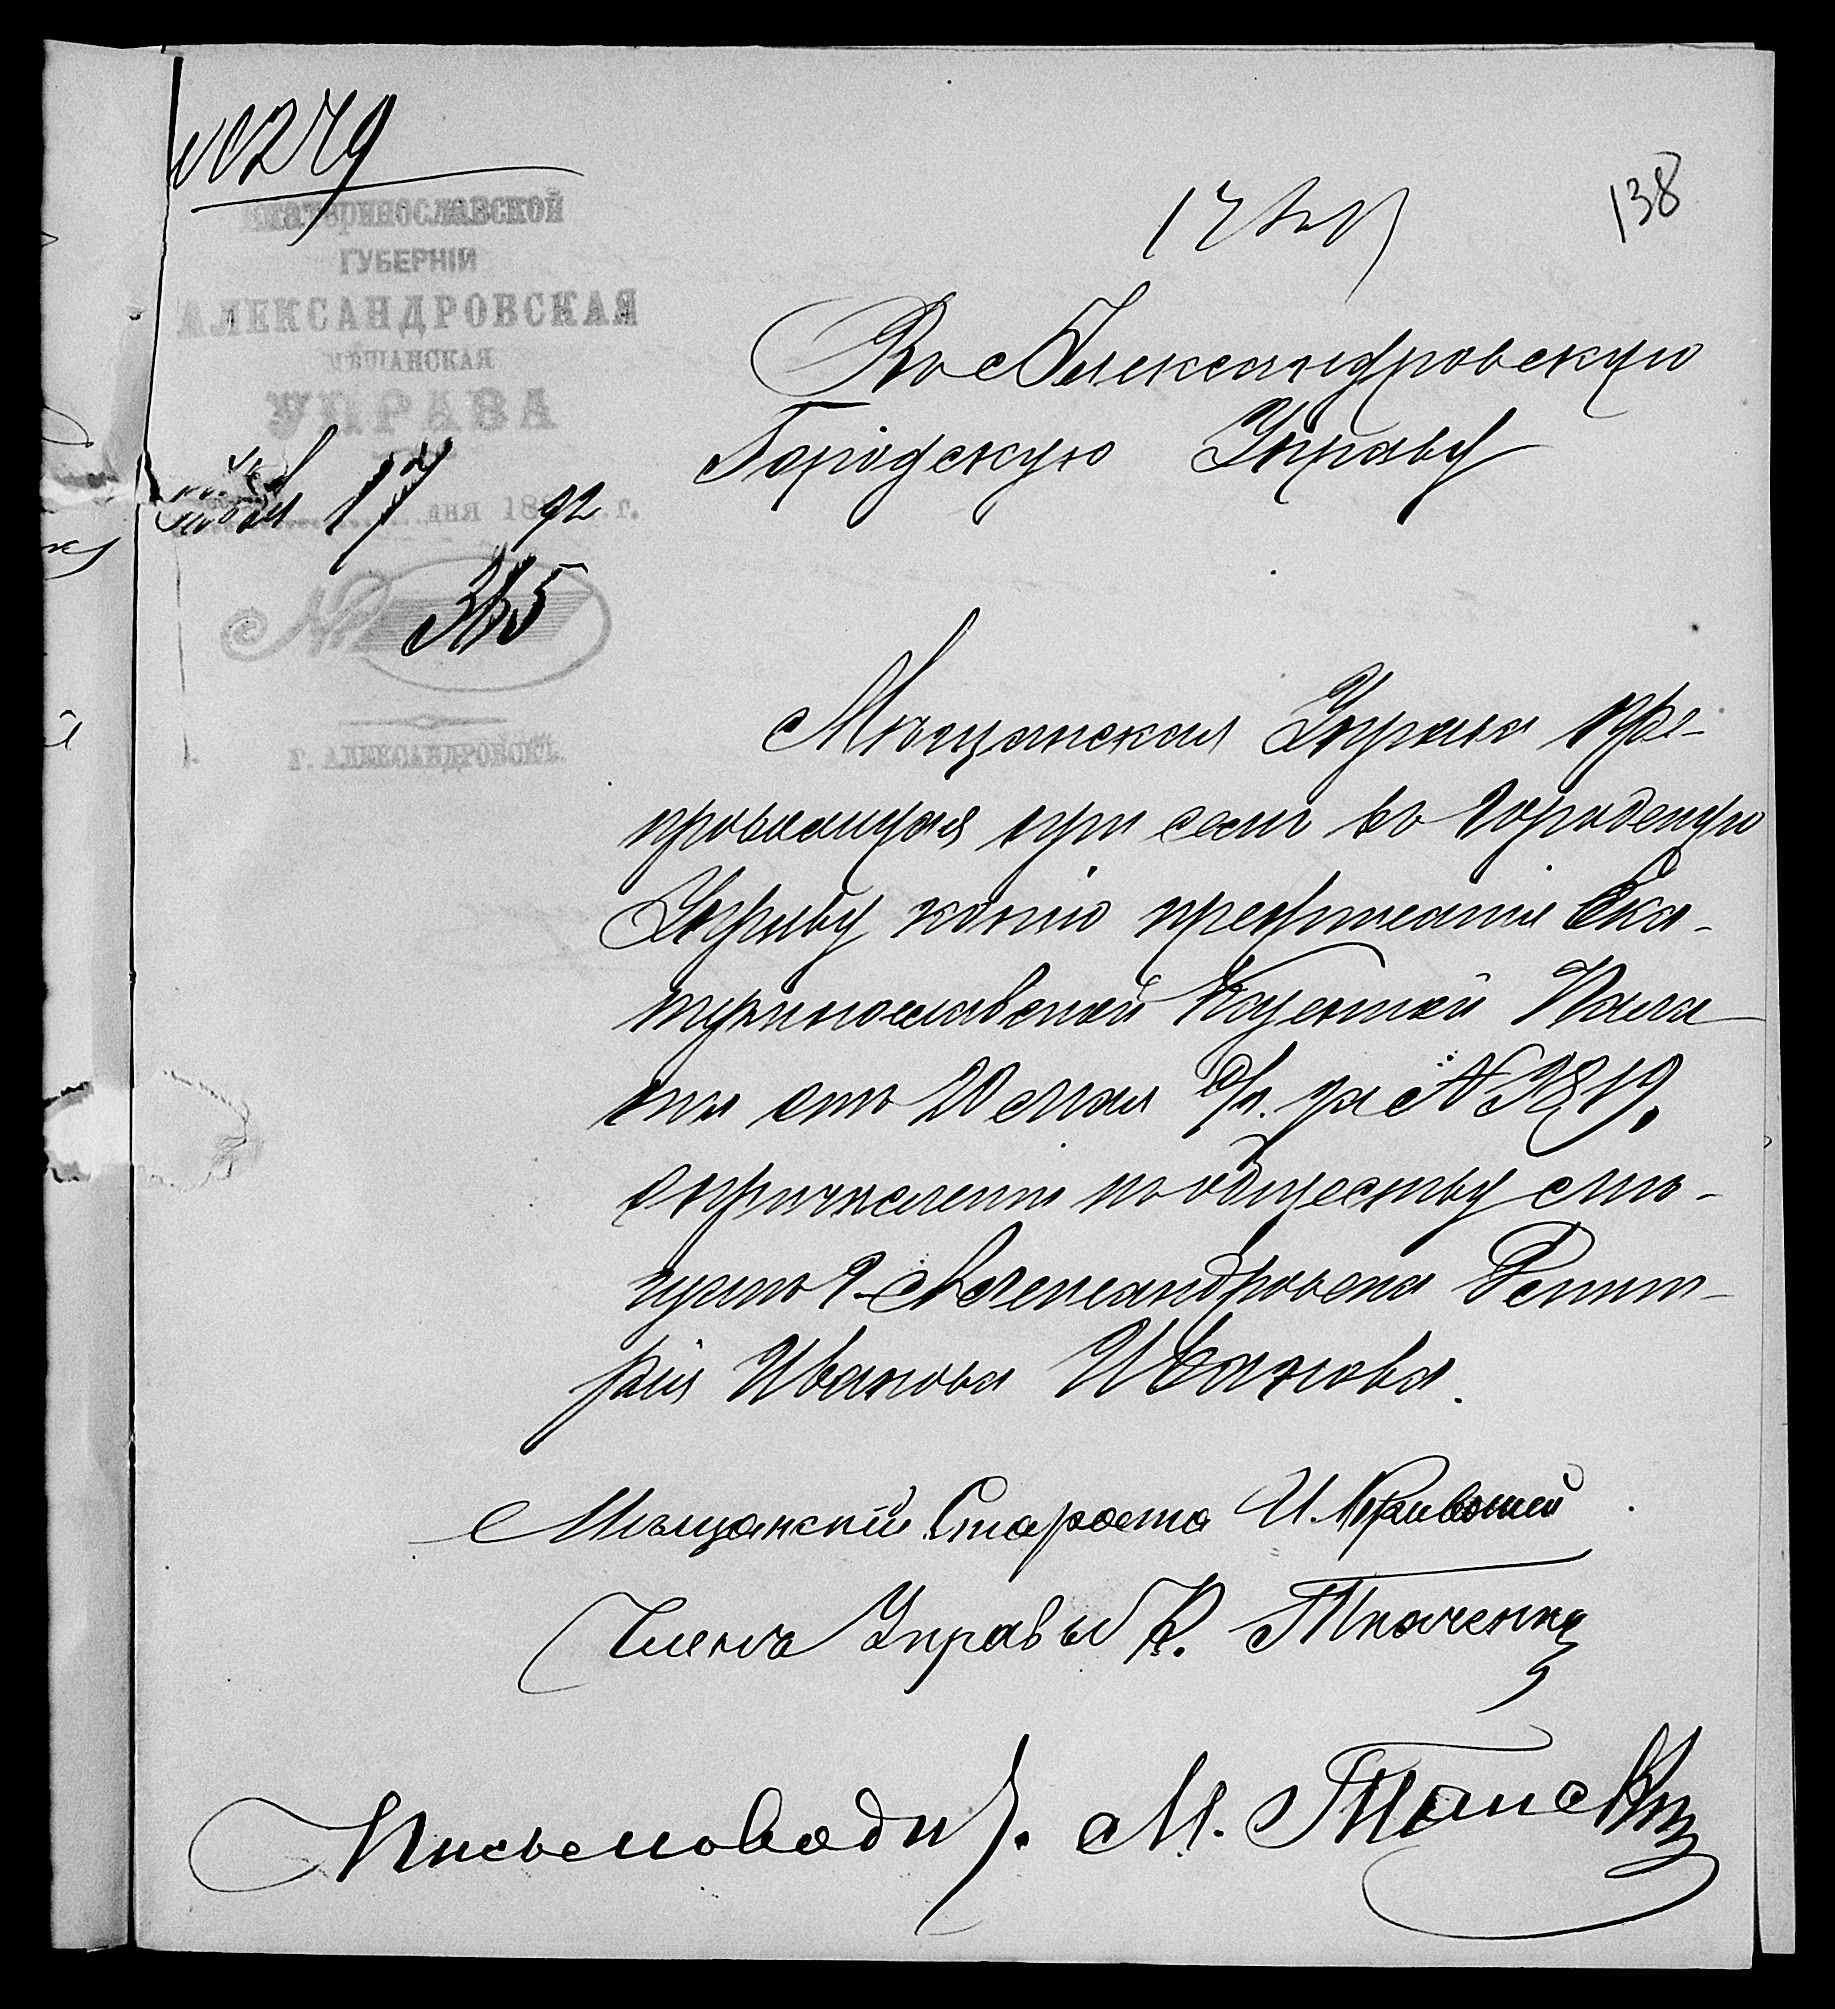 № 279
138
Екатеринославской
ГУБЕРНІИ
АЛЕКСАНДРОВСКАЯ
МѢЩАНСКАЯ
УПРАВА
17 дня 1892 г.
№ 345
Г. АЛЕКСАНДРОВСКЪ.
Въ Александровскую
Городскую Управу
Мѣщанская Управа пре-
провождая при семъ въ Городскую
Управу копію предписанія Ека-
теринославской Казенной Пала
ты отъ 20 мая с/г. за № 3819,
о причисленіи по обществу мѣ-
щанъ г. Александровска
Иванова Иванова.
Мѣщанскій Староста И. Кривошей
Членъ Управы К. Ткаченко
Письмоводи. М.